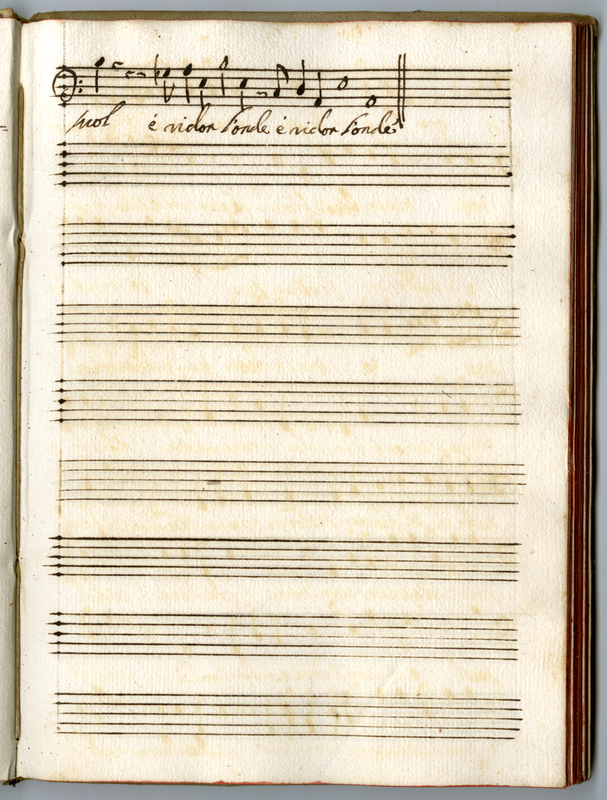 suol è rider l'onde è rider l'onde